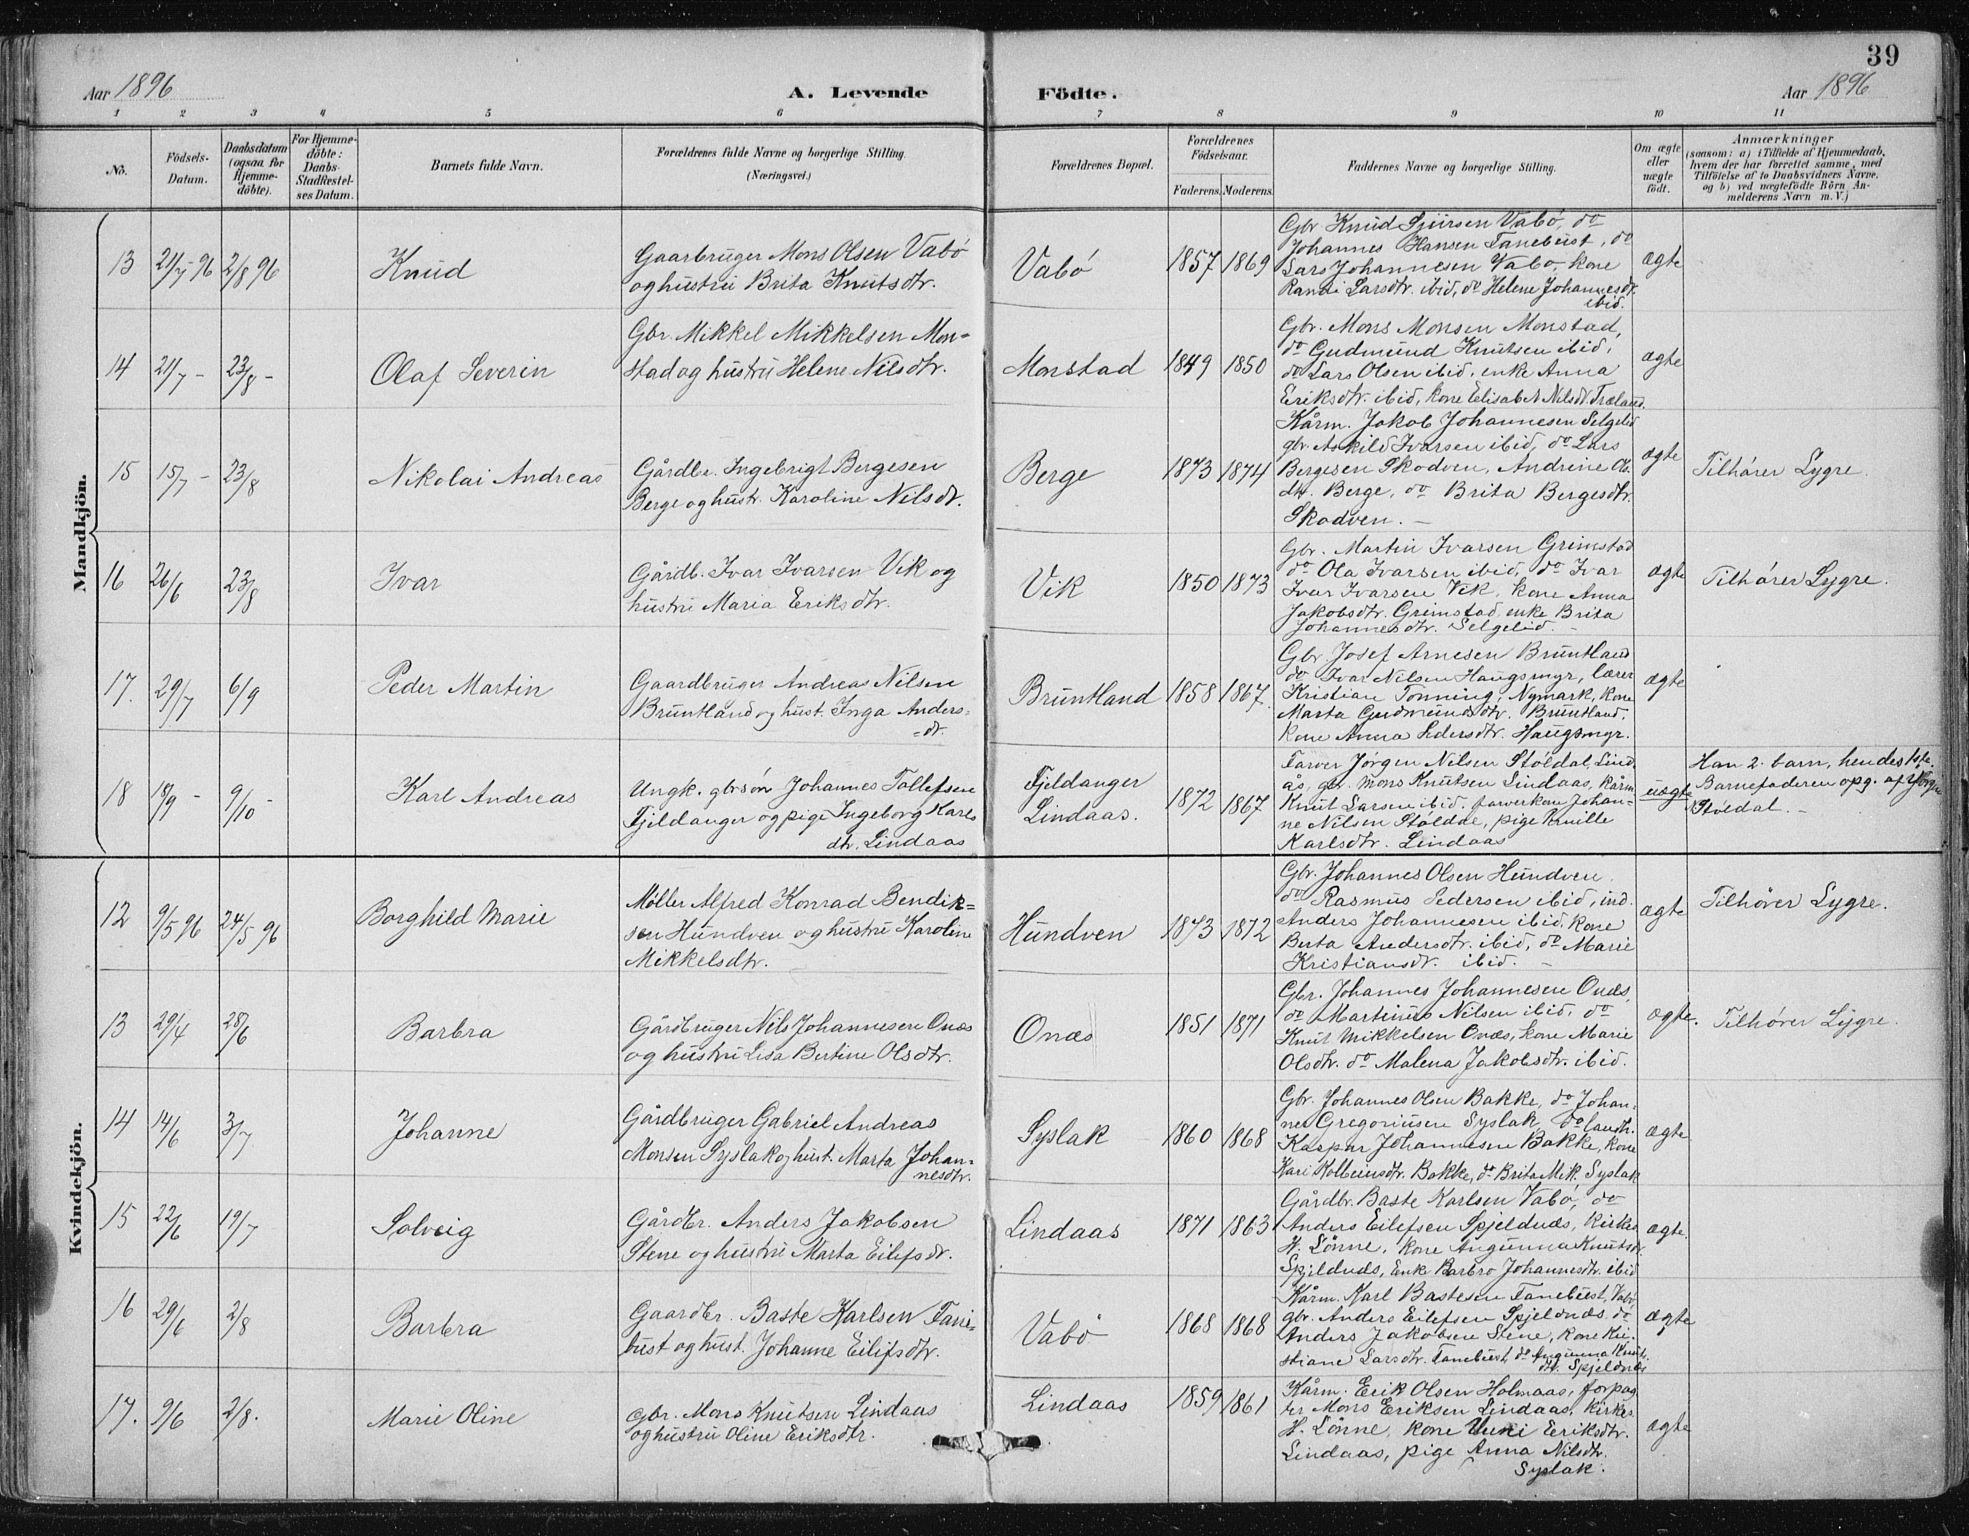 39
Aar 1896
A. Levende
Födte.
Aar 1896
1 2 3 4 5 6 7 8 9 10 11
No.
Födsels-
Datum.
Daabsdatum
(ogsaa for
Hjemme-
döbte).
For Hjemme-
döbte:
Daabs-
Stadfæstel-
ses Datum.
Barnets fulde Navn.
Forældrenes fulde Navne og borgerlige Stilling.
(Næringsvei.)
Forældrenes Bopæl.
Forældrenes
Födselsaar.
Faderens. Moderens.
Faddernes Navne og borgerlige Stilling.
Om ægte
eller
uægte
födt.
Anmærkninger
(saasom: a) i Tilfælde af Hjemmedaab,
hvem der har forrettet samme, med
Tilföielse af to Daabsvidners Navne,
og b) ved uægtefödte Börn An-
melderens Navn m. V.)
Mandkjön.
13 21/7-96 2/8 96
Knud
Gaarbruger Mons Olsen Vabö
og hustru Brita Knutsdtr.
Vabö
1857 1869
Gbr Knud Sjursen Vabö, do
Johannes Hansen Fanebust, do
Lars Johannesen Vabö, kone
Randi Larsdtr. ibid, do Helene Johannesdt.
ibid.
ægte
14 21/7 - 23/8 -
Olaf Severin
Gbr. Mikkel Mikkelsen Mon-
stad og hustru Helene Nilsdtr.
Monstad
1849 1850
Gbr. Mons Monsen Monstad,
do Gudmund Knutsen ibid,
do Lars Olsen ibid, enke Anna
Eriksdtr. ibid, kone Elisabet Nilsdt. Træland.
ægte
15 15/7 - 23/8
Nikolai Andreas
Gårdbr. Ingebrigt Bergesen
Berge og hustr. Karoline Nilsdt.
Berge
1873 1874
Kårm. Jakob Johannesen Selgelid
gbr. Askild Ivarsen ibid, do Lars
Bergesen Skodven, Andrine Ol.
dtr. Berge, do Brita Bergesdtr.
Skodven. -
ægte
Tilhører Lygre.
16 26/6 23/8
Ivar
Gårdb. Ivar Ivarsen Vik og
hustru Maria Eriksdtr.
Vik
1850 1873
Gbr. Martin Ivarsen Grimstad
do Ola Ivarsen ibid, do Ivar
Ivar Ivarsen Vik, kone Anna
Jakobsdtr. Grimstad, enke Brita
Johannesdtr. Selgelid. -
ægte
Tilhører Lygre.
17. 29/7 6/9
Peder Martin
Gaardbruger Andreas Nilsen
Bruntland og hust. Inga Anders-
-dt.
Bruntland
1858 1867.
Gbr. Josef Arnesen Bruntland
do Ivar Nilsen Haugsmyr, lærer
Kristian Tonning, Nymark, kone
Marta Gudmundsdtr. Bruntland,
kone Anna Pedersdtr. Haugsmyr.
ægte
18 18/9 - 9/10 -
Karl Andreas
Ungk. gbrsøn Johannes Tollefsen
Fjeldanger og pige Ingeborg Karls
dtr. Lindaas
Fjeldanger
Lindaas.
1872 1867
Farver Jørgen Nilsen Støldal, Lind-
ås, gbr. Mons Knutsen Lindaas, kårm
Knut Larsen ibid, farverkone Johan-
ne Nilsen Støldal, pige
Karlsdtr. Lindaas
uægte
Han 2. barn, hendes 1ste.
Barnefaderen opg. af Jörgen
Støldal. -
Kvindekjön.
12 9/5 96 24/5 96
Borghild Marie
Møller Alfred Konrad Bendik=
sen Hundven og hustru Karoline
Mikkelsdtr.
Hundven
1873 1872
Gbr. Johannes Olsen Hundven.
do Rasmus Pedersen ibid, ind.
Anders Johannesen ibid, kone
Berta Andersdtr. ibid, do Marie
Kristiansdt. ibid. -
ægte
Tilhører Lygre.
13 29/4 28/6
Barbra
Gårdbruger Nils Johannesen Onæs
og hustru Lisa Bertine Olsdtr.
Onæs
1851 1871
Gbr. Johannes Johannesen Onæs,
do Martinus Nilsen ibid, do
Knut Mikkelsen Onæs, kone Marie
Olsdtr. do Malena Jakobsdtr. ibid.
ægte.
Tilhører Lygre.
14 14/6 3/7
Johanne
Gårdbruger Gabriel Andreas
Monsen Syslak og hust. Marta Johan-
nesdtr.
Syslak
1860 1868
Gbr. Johannes Olsen Bakke, do Johan-
nes Gregoriusen Syslak, do landh.
Kaspar Johannesen Bakke, kone
Kari Kolbeinsdtr. Bakke, do Brita Mik. Syslak
ægte
15 22/6 19/7
Solveig
Gårdbr. Anders Jakobsen
Stene og hustru Marta Eilefsdt.
Lindaas
1871 1863
Gårdbr. Baste Karlsen Vabö, do
Anders Eilefsen Spjeldnæs, kirkes.
H. Lönne, kone Angunna Knutsdt.
Spjeldnæs, Enke Barbro Johannesdtr. ibid
ægte.
16 29/6 2/8
Barbra
Gaardbr. Baste Karlsen Fane-
bust og hust. Johanne Eilifsdtr.
Vabö
1868 1868
Kårm. Karl Bastesen Fanebust, Vabö
gbr. Anders Eilefsen Spjeldnæs, do
Anders Jakobsen Stene, kone Kri-
stiane Larsdtr. Fanebust, do Angunna Knut.
dt. Spjeldnæs
ægte
17. 9/6 2/8.
Marie Oline
gbr. Mons Knutsen Lindaas
og hustru Oline Eriksdtr.
Lindaas
1859 1861
Kårm. Erik Olsen Holmaas, forpag
ter Mons Eriksen Lindaas, kirkes.
H. Lönne, kone Unni Eriksdtr.
Lindaas, pige Anna Nilsdtr.
Syslak.
ægte